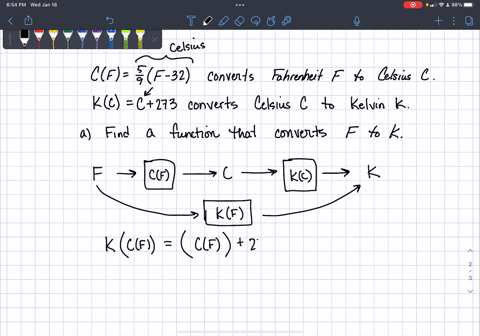 6:54 PM Wed Jan 18
98%
T
Celsius
C(F) = 5/9 (F-32) converts Fahrenheit F to Celsius C.
K(C) = C+273 converts Celsius C to Kelvin K.
a) Find a function that converts F to K.
F → C(F) → C → K(C) → K
K(F)
K(C(F)) = (C(F)) + 2
2
3